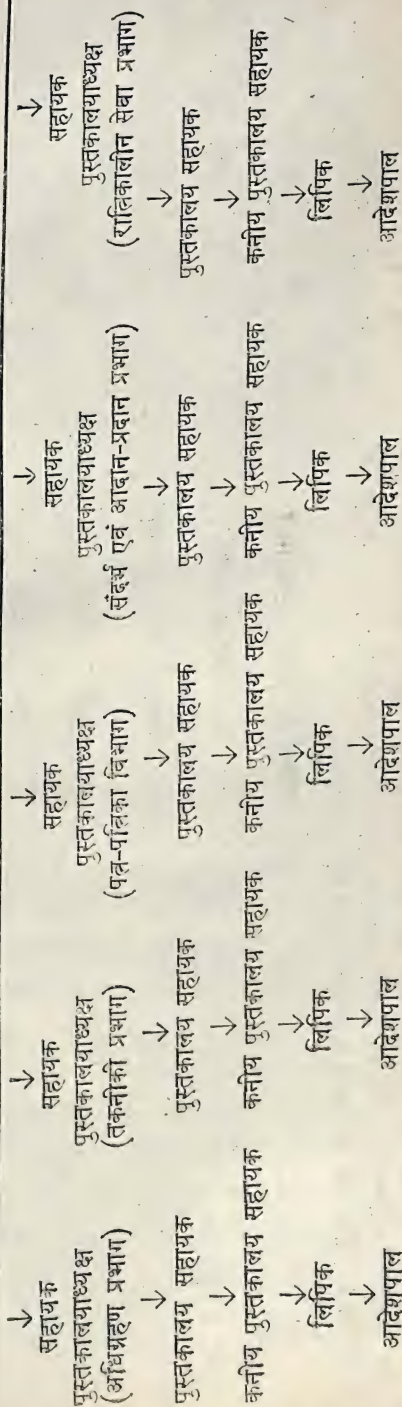 सहायक
पुस्तकालयाध्यक्ष
(अधिग्रहण प्रभाग)
पुस्तकालय सहायक
कनीय पुस्तकालय सहायक
लिपिक
आदेशपाल
सहायक
पुस्तकालयाध्यक्ष
(तकनीकी प्रभाग)
पुस्तकालय सहायक
कनीय पुस्तकालय सहायक
लिपिक
आदेशपाल
सहायक
पुस्तकालयाध्यक्ष
(पत्र-पत्रिका विभाग)
पुस्तकालय सहायक
कनीय पुस्तकालय सहायक
लिपिक
आदेशपाल
सहायक
पुस्तकालयाध्यक्ष
(संदर्भ एवं आदान-प्रदान प्रभाग)
पुस्तकालय सहायक
कनीय पुस्तकालय सहायक
लिपिक
आदेशपाल
सहायक
पुस्तकालयाध्यक्ष
(रात्रिकालीन सेवा प्रभाग)
पुस्तकालय सहायक
कनीय पुस्तकालय सहायक
लिपिक
आदेशपाल